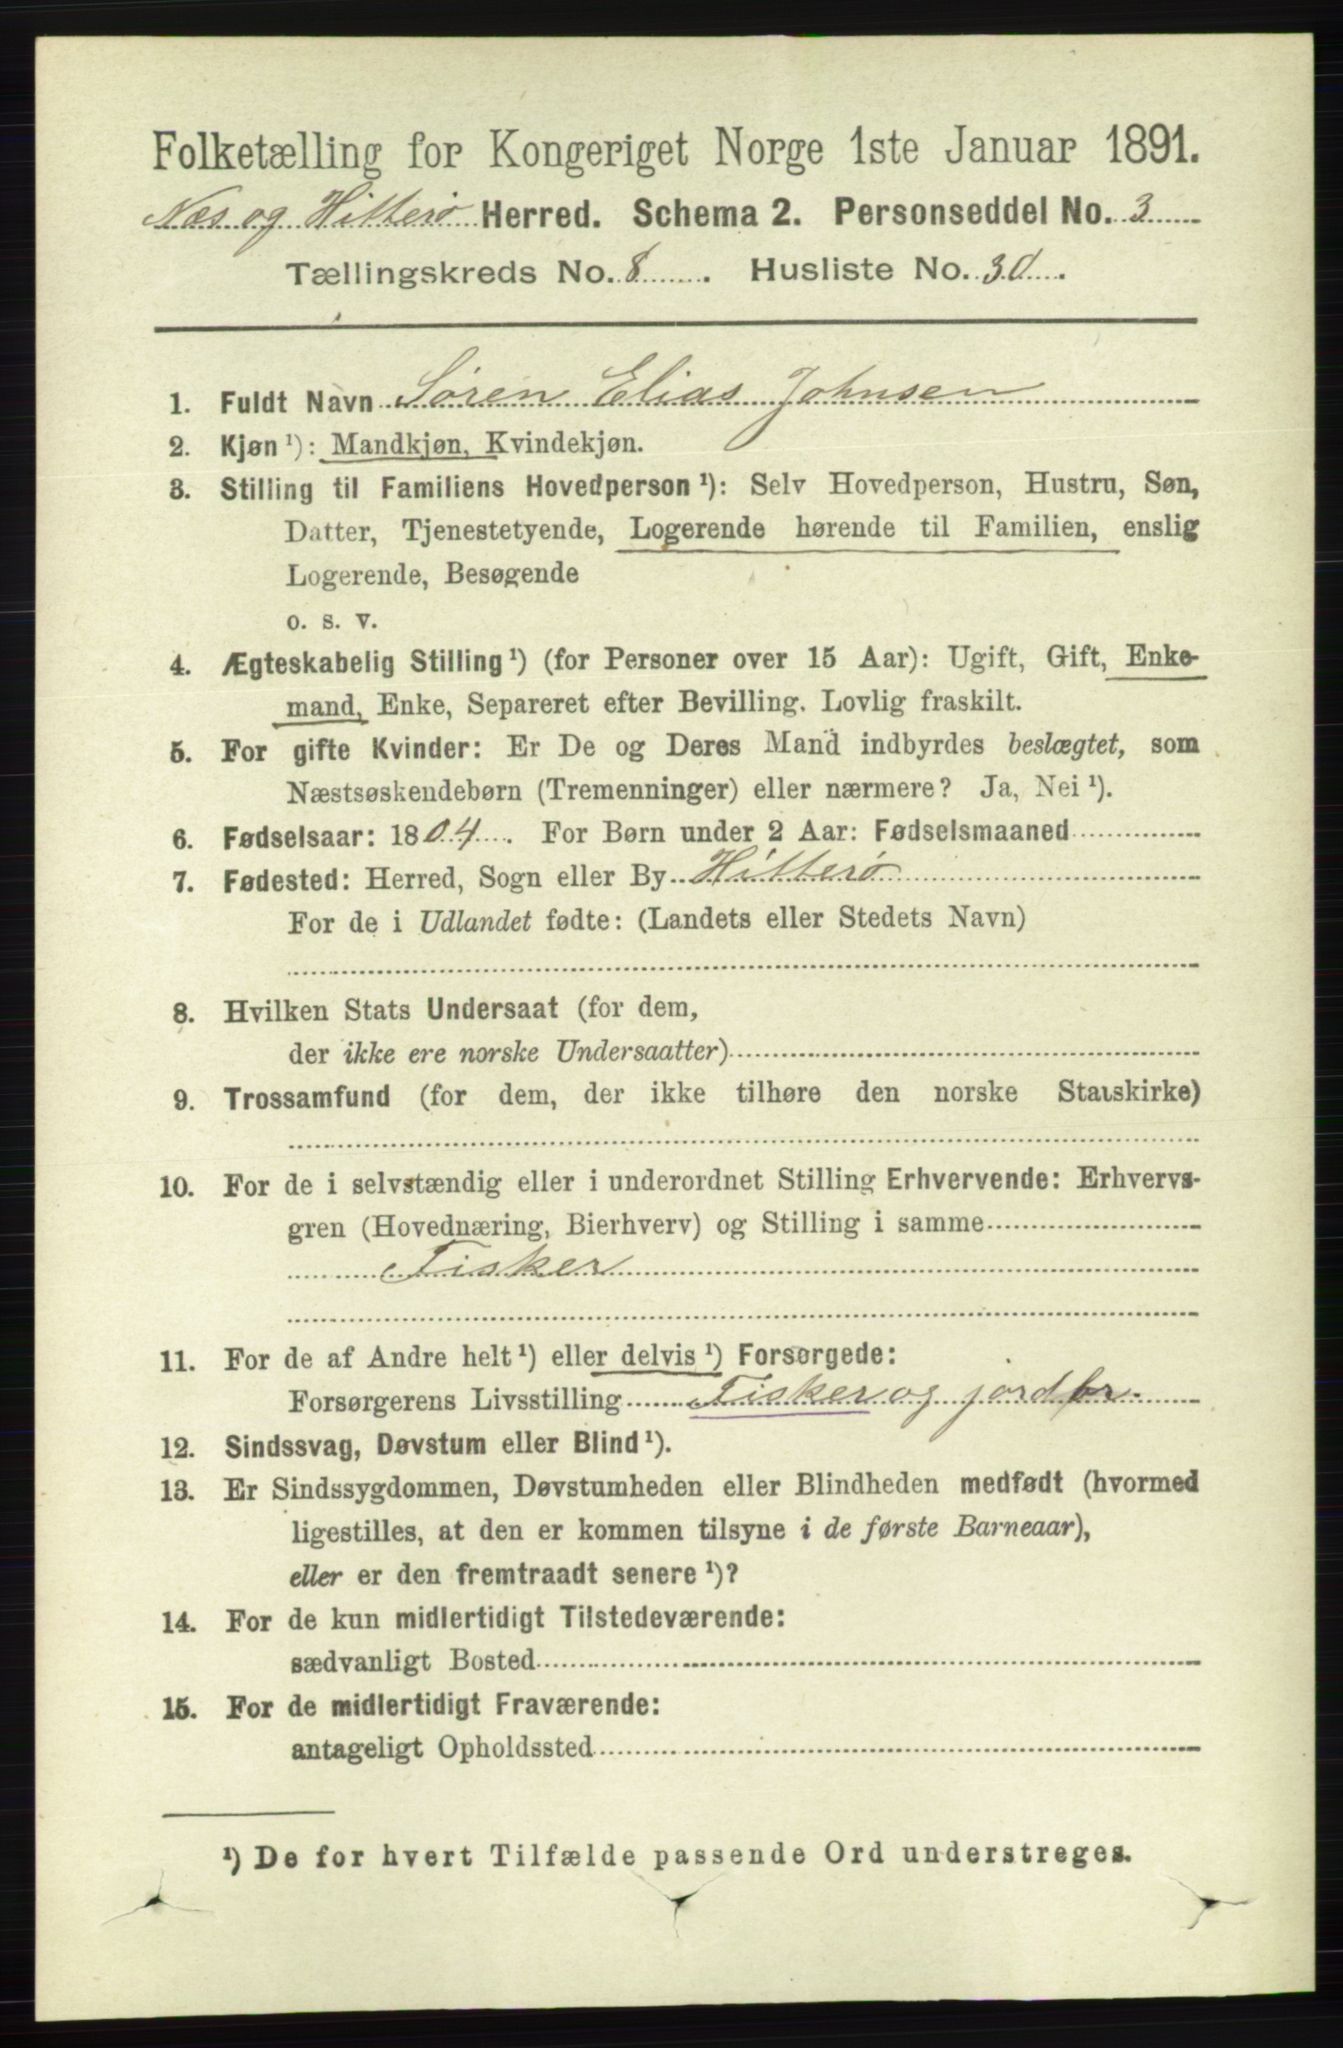 Folketælling for Kongeriget Norge 1ste Januar 1891.
Næs og Hitterø Herred. Schema 2. Personseddel No. 3
Tællingskreds No. 8. Husliste No. 30.
1. Fuldt Navn Søren Elias Johnsen
2. Kjøn ¹): Mandkjøn, Kvindekjøn.
3. Stilling til Familiens Hovedperson ¹): Selv Hovedperson, Hustru, Søn,
Datter, Tjenestetyende, Logerende hørende til Familien, enslig
Logerende, Besøgende
o. s. v.
4. Ægteskabelig Stilling ¹) (for Personer over 15 Aar): Ugift, Gift, Enke-
mand, Enke, Separeret efter Bevilling. Lovlig fraskilt.
5. For gifte Kvinder: Er De og Deres Mand indbyrdes beslægtet, som
Næstsøskendebørn (Tremenninger) eller nærmere? Ja, Nei ¹).
6. Fødselsaar: 1804. For Børn under 2 Aar: Fødselsmaaned
7. Fødested: Herred, Sogn eller By Hitterø
For de i Udlandet fødte: (Landets eller Stedets Navn)
8. Hvilken Stats Undersaat (for dem,
der ikke ere norske Undersaatter)
9. Trossamfund (for dem, der ikke tilhøre den norske Statskirke)
10. For de i selvstændig eller i underordnet Stilling Erhvervende: Erhvervs-
gren (Hovednæring, Bierhverv) og Stilling i samme
Fisker
11. For de af Andre helt ¹) eller delvis ¹) Forsørgede:
Forsørgerens Livsstilling Fisker og jordbr.
12. Sindssvag, Døvstum eller Blind ¹).
13. Er Sindssygdommen, Døvstumheden eller Blindheden medfødt (hvormed
ligestilles, at den er kommen tilsyne i de første Barneaar),
eller er den fremtraadt senere ¹)?
14. For de kun midlertidigt Tilstedeværende:
sædvanligt Bosted
15. For de midlertidigt Fraværende:
antageligt Opholdssted
¹) De for hvert Tilfælde passende Ord understreges.